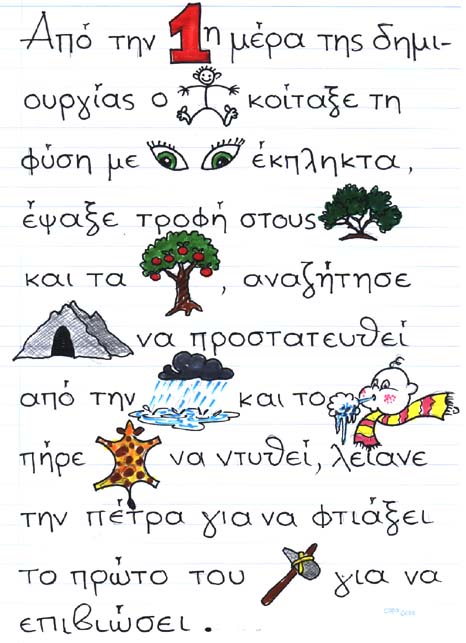 Από την 1η μέρα της δημι-
ουργίας ο κοίταξε τη
φύση με έκπληκτα,
έψαξε τροφή στους
και τα , αναζήτησε
να προστατευθεί
από την και το
πήρε να ντυθεί, λείανε
την πέτρα για να φτιάξει
το πρώτο του για να
επιβιώσει.